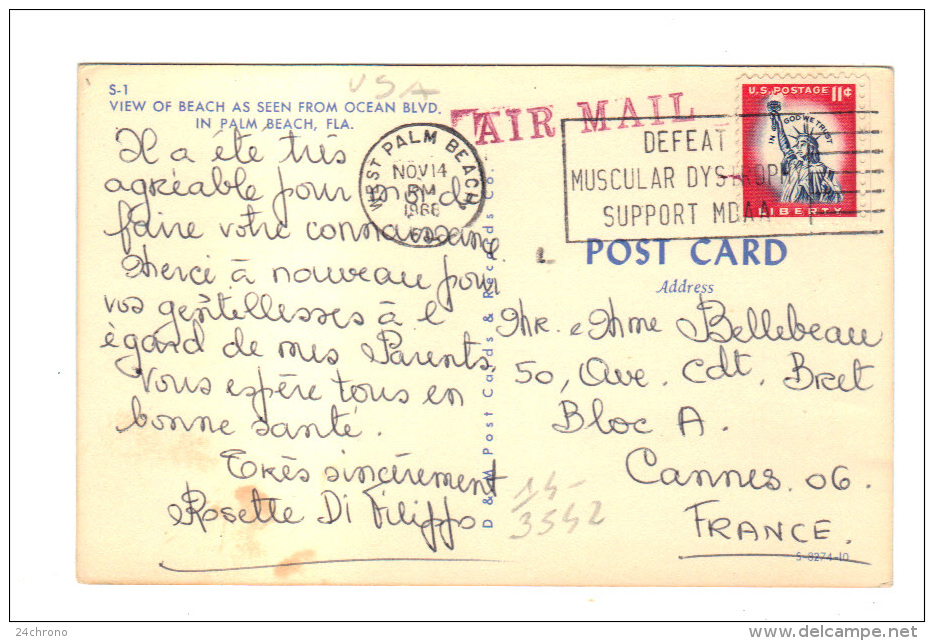 USA
S-1
VIEW OF BEACH AS SEEN FROM OCEAN BLVD.
IN PALM BEACH, FLA.
Il a été très
agréable pour moi de
faire votre connaissance.
Merci à nouveau pour
vos gentillesses à l
égard de mes Parents.
Vous espère tous en
bonne santé.
Très sincèrement
Rosette Di Filippo
WEST PALM BEACH,
NOV 14
PM
1966
AIR MAIL
DEFEAT
MUSCULAR DYSTROPH
SUPPORT MDAA
U.S. POSTAGE 11¢
IN GOD WE TRUST
LIBERTY
D & M Post Cards & Records Co.
POST CARD
Address
Mr. e Mme Bellebeau
50, Ave. Cdt. Bret
Bloc A.
Cannes. 06.
FRANCE.
14-
3542
S-8274-10
24chrono
delcampe.net